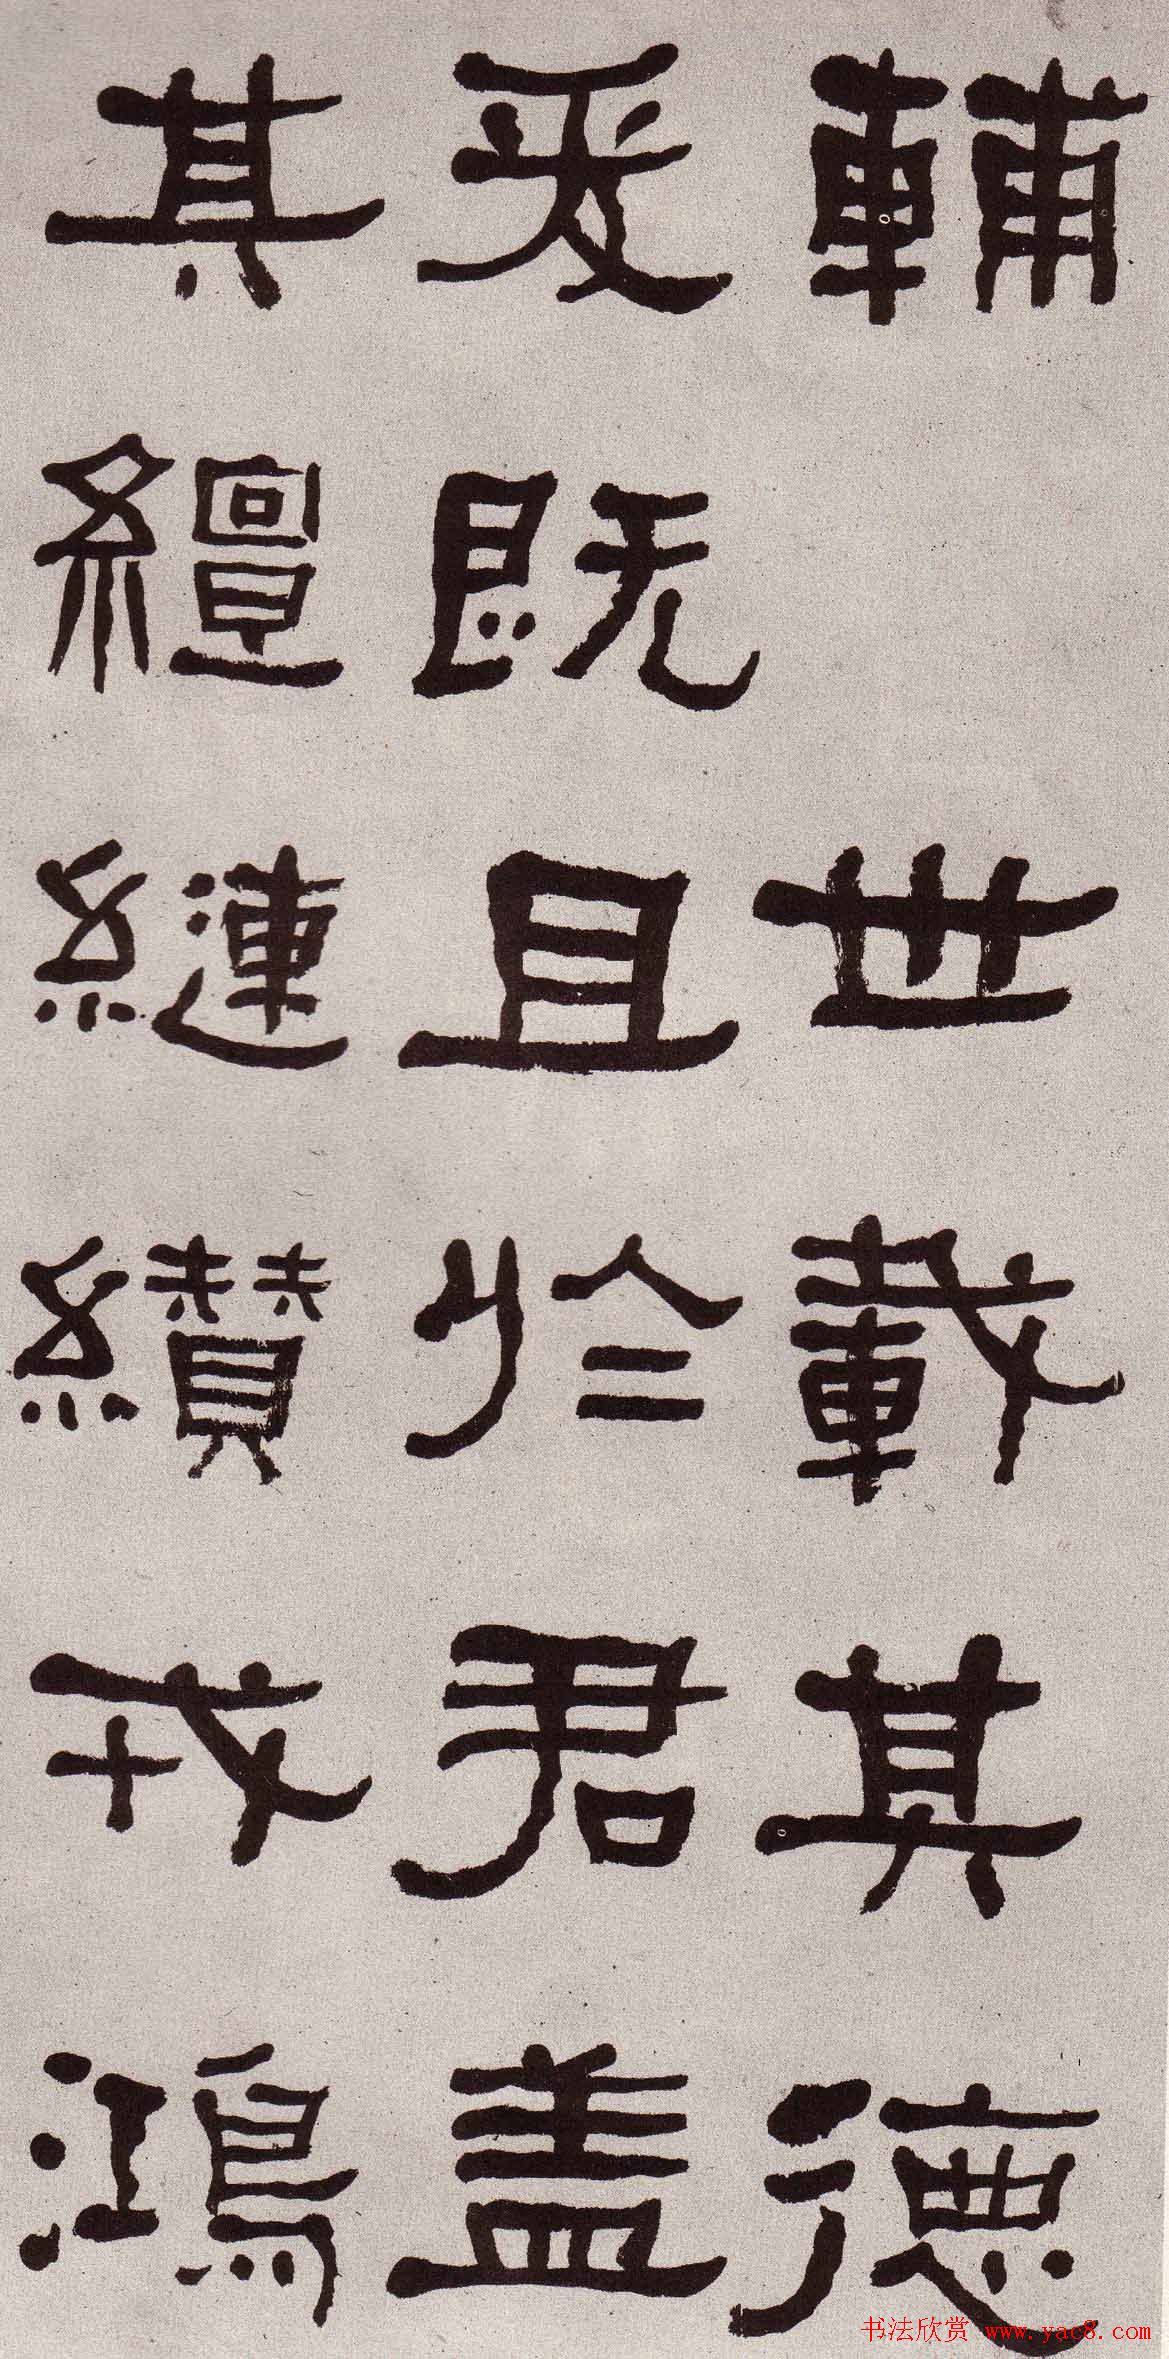 輔世載其德
爰既且於君盖
其繵縺纘戎鴻
书法欣赏 www.yac8.com